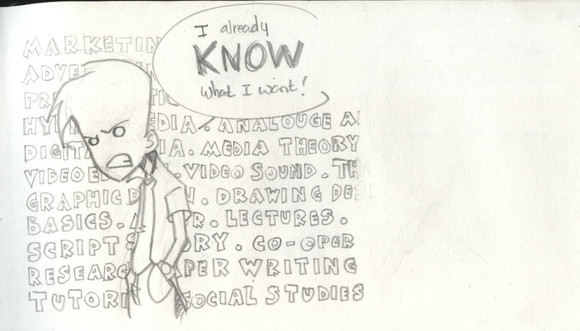 I already
KNOW
what I want!
MARKETIN
ADVE
PR
HY EDIA. ANALOUGE A
DIGIT IA. MEDIA THEORY
VIDEO E . VIDEO SOUND. TH
GRAPHIC D N. DRAWING DE
BASICS. R. LECTURES.
SCRIPT S ORY. CO-OPER
RESEARC PER WRITING
TUTORI SOCIAL STUDIES